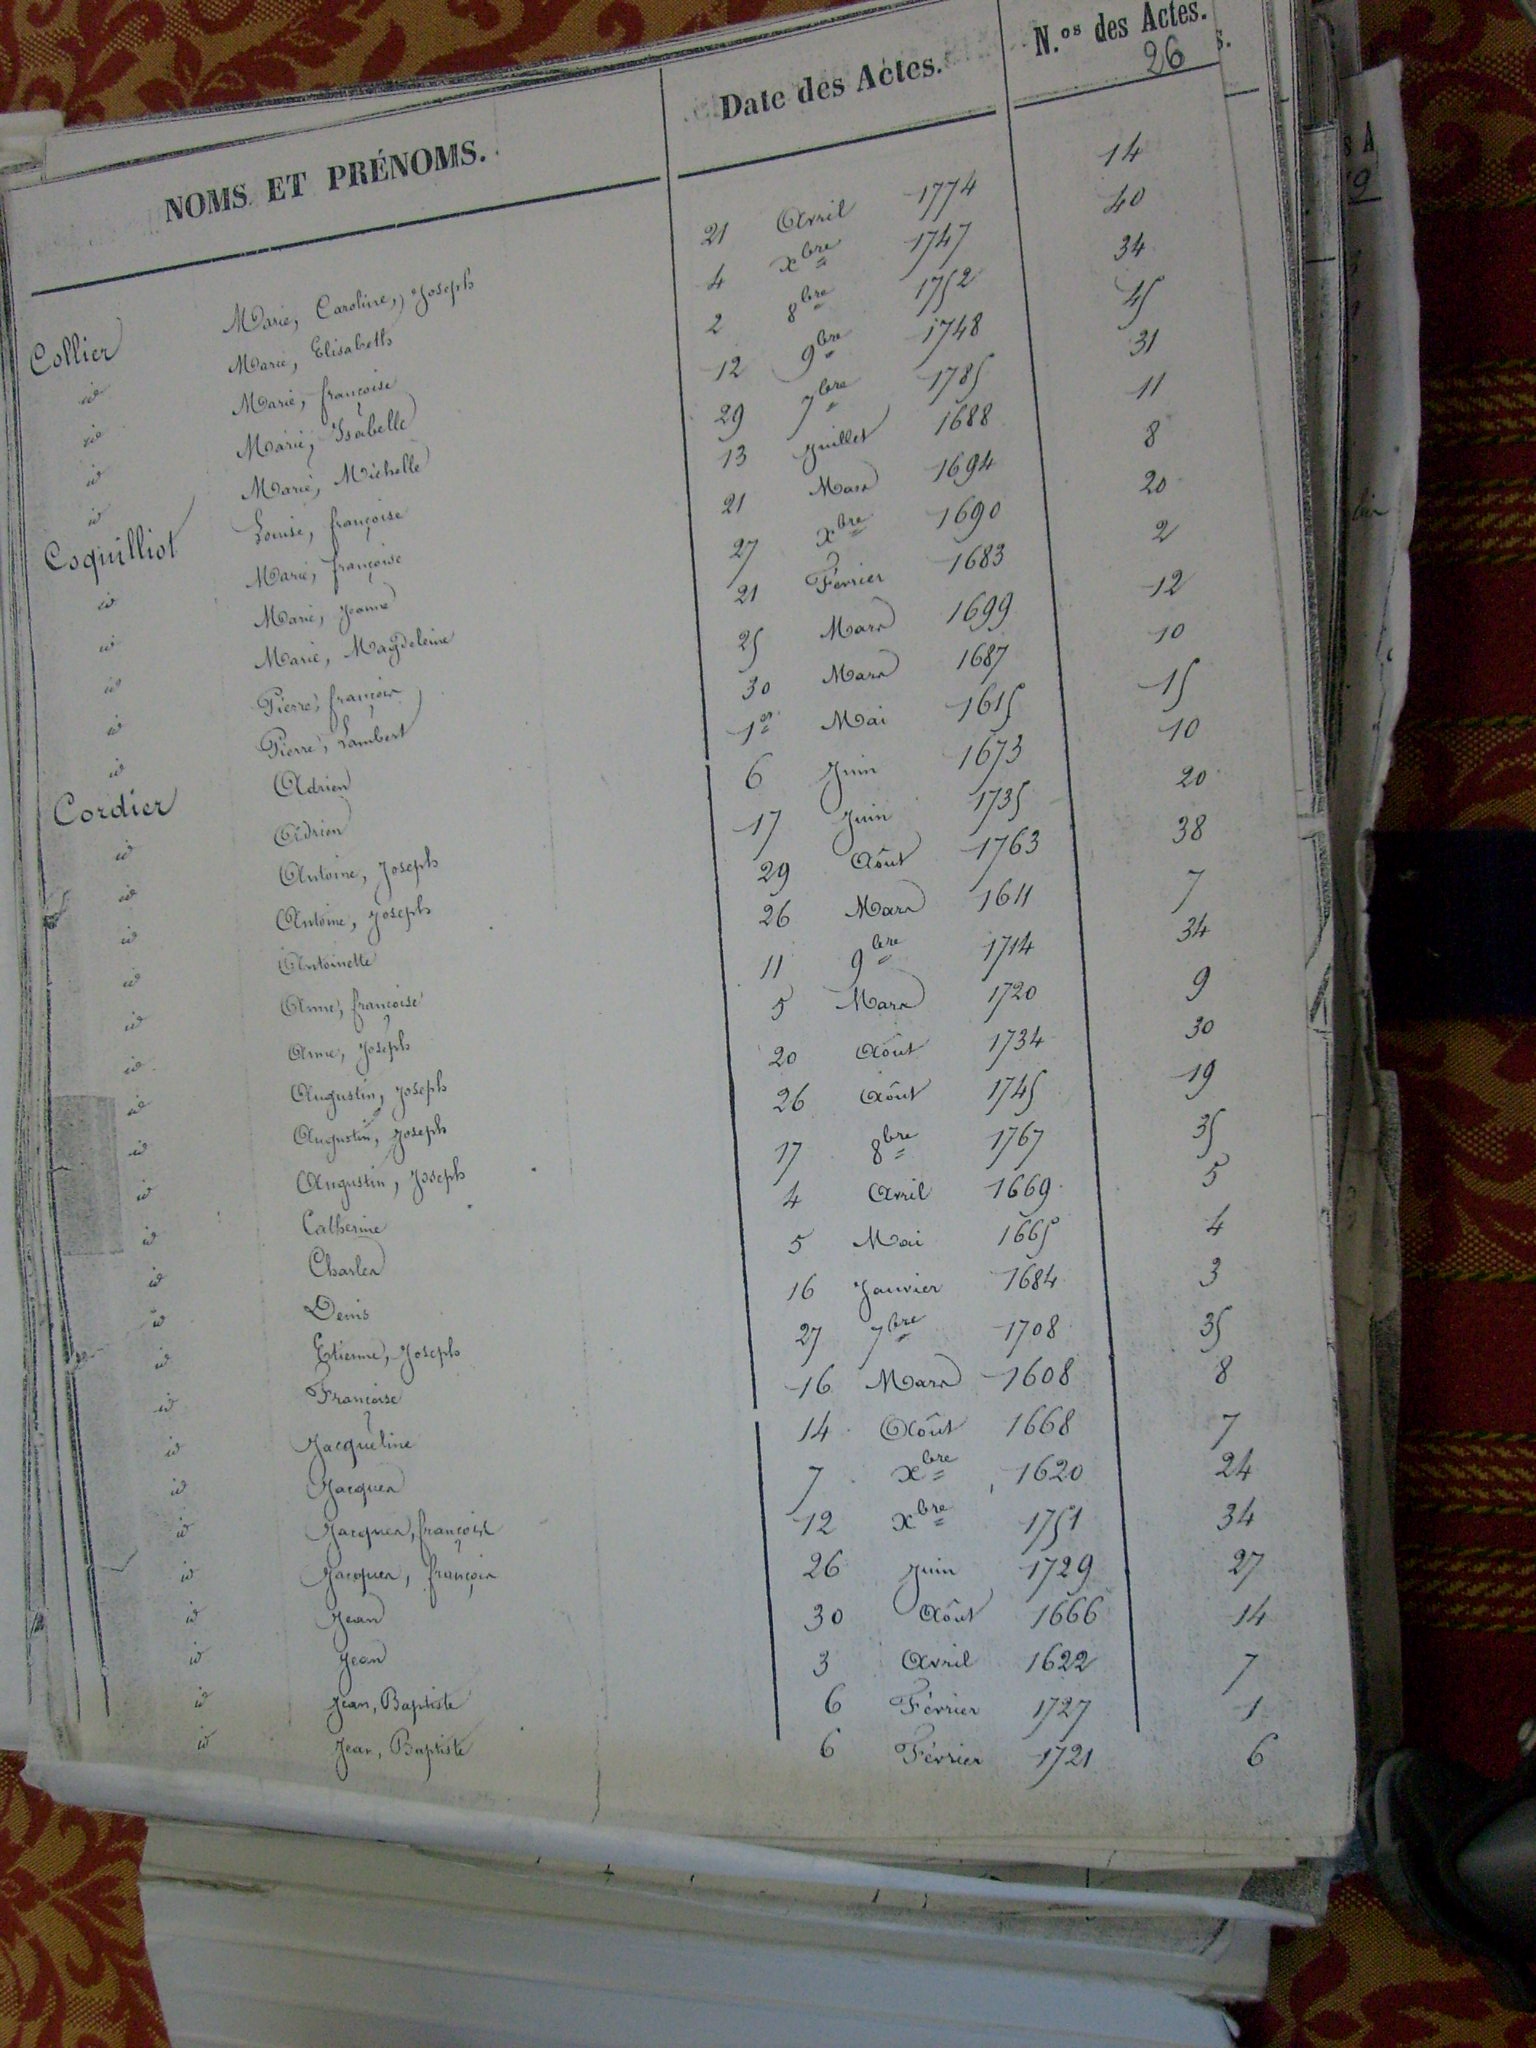 NOMS ET PRÉNOMS. Date des Actes. N.os des Actes.
26
Collier Marie, Caroline, Joseph 21 Avril 1774 14
id Marie, Elisabeth 4 xbre 1747 40
id Marie, françoise 2 8bre 1752 34
id Marie, Isabelle 12 9bre 1748 45
id Marie, Michelle 29 7bre 1785 31
Coquilliot Louise, françoise 13 Juillet 1688 11
id Marie, françoise 21 Mars 1694 8
id Marie, Jeanne 27 xbre 1690 20
id Marie, Magdeleine 21 Février 1683 2
id Pierre, françois 25 Mars 1699 12
id Pierre, Lambert 30 Mars 1687 10
Cordier Adrien 1er Mai 1615 15
id Adrien 6 Juin 1673 10
id Antoine, Joseph 17 Juin 1735 20
id Antoine, Joseph 29 Août 1763 38
id Antoinette 26 Mars 1611 7
id Anne, françoise 11 9bre 1714 34
id Anne, Joseph 5 Mars 1720 9
id Augustin, Joseph 20 Août 1734 30
id Augustin, Joseph 26 Août 1745 19
id Augustin, Joseph 17 8bre 1767 35
id Catherine 4 Avril 1669 5
id Charles 5 Mai 1665 4
id Denis 16 Janvier 1684 3
id Etienne, Joseph 27 7bre 1708 35
id Françoise 16 Mars 1608 8
id Jacqueline 14 Août 1668 7
id Jacques 7 xbre 1620 24
id Jacques, françois 12 xbre 1751 34
id Jacques, françois 26 Juin 1729 27
id Jean 30 Août 1666 14
id Jean 3 Avril 1622 7
id Jean, Baptiste 6 Février 1727 1
id Jean, Baptiste 6 Février 1721 6